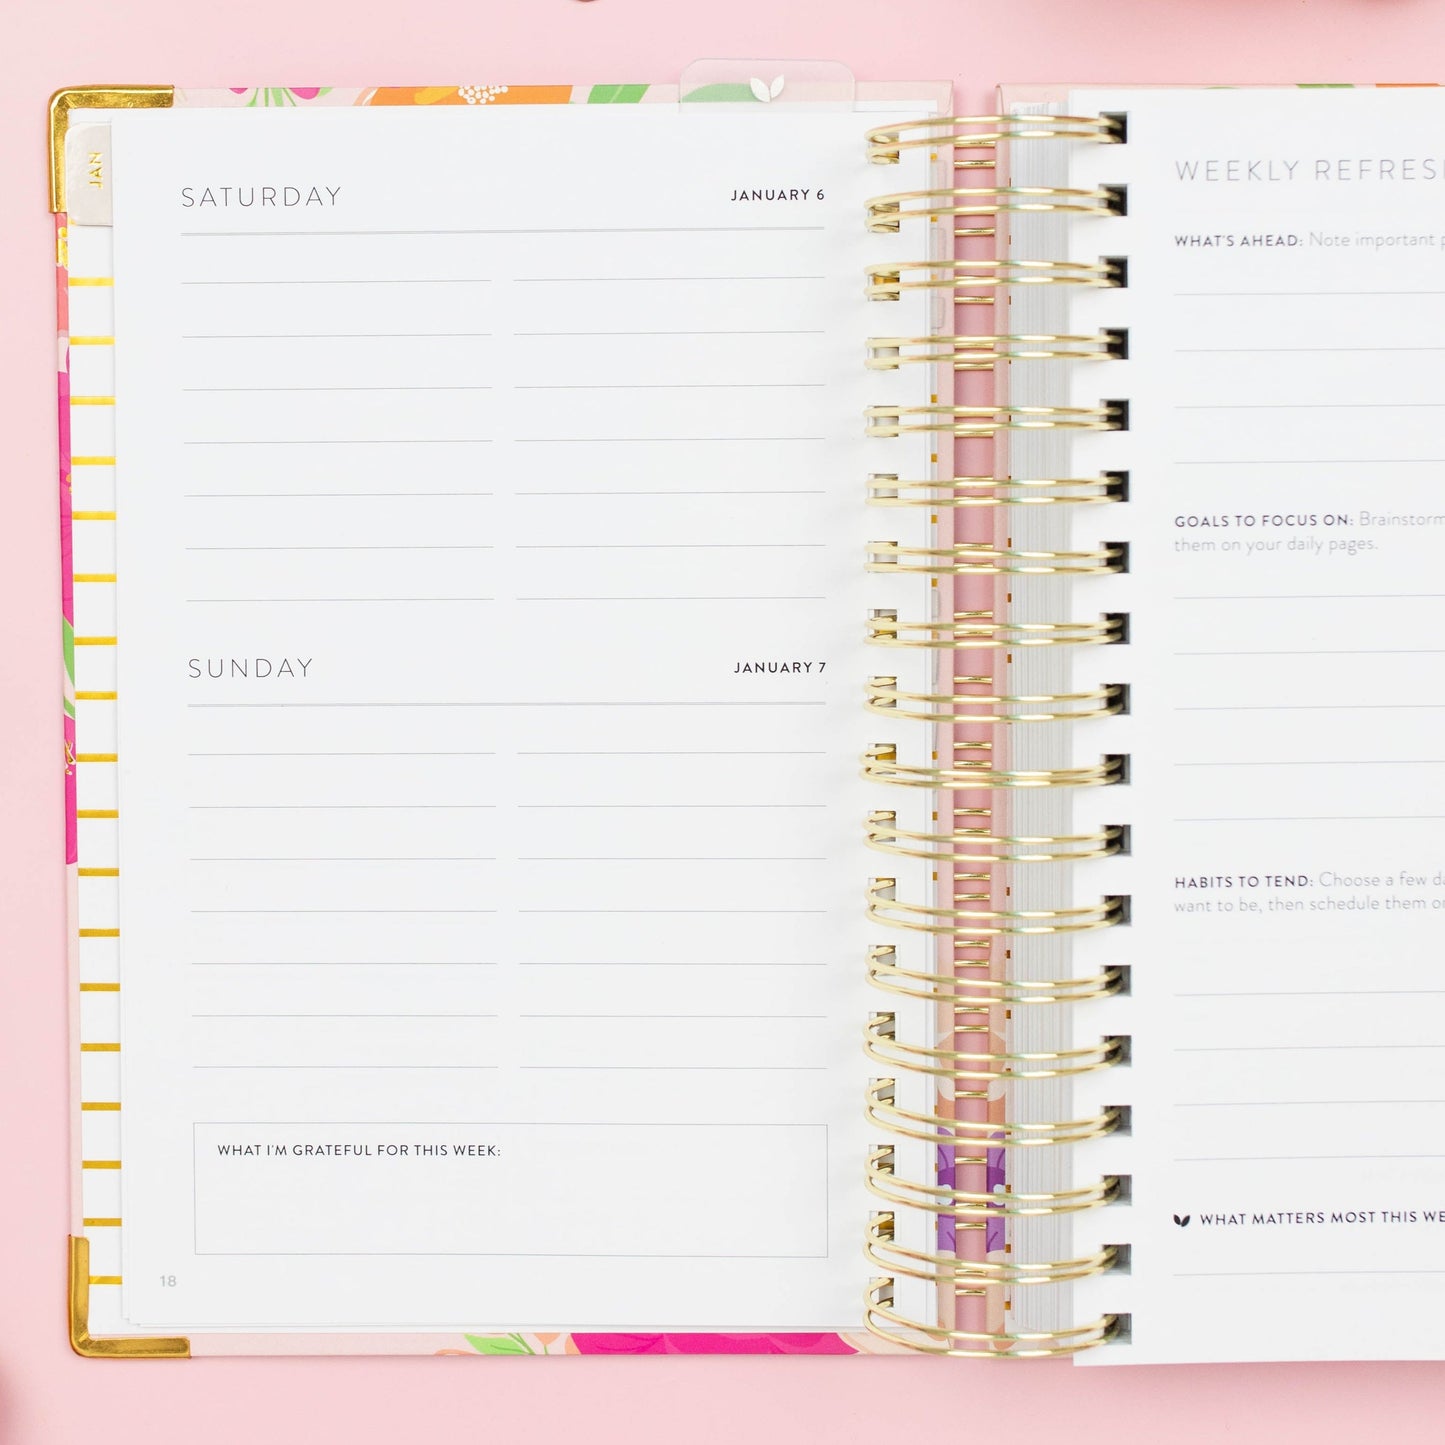 JAN
SATURDAY JANUARY 6
SUNDAY JANUARY 7
WHAT I'M GRATEFUL FOR THIS WEEK:
18
WEEKLY
WHAT'S AHEAD: Note important
GOALS TO FOCUS ON: Brainstorm
them on your daily pages.
HABITS TO TEND: Choose a few
want to be, then schedule them
WHAT MATTERS MOST THIS